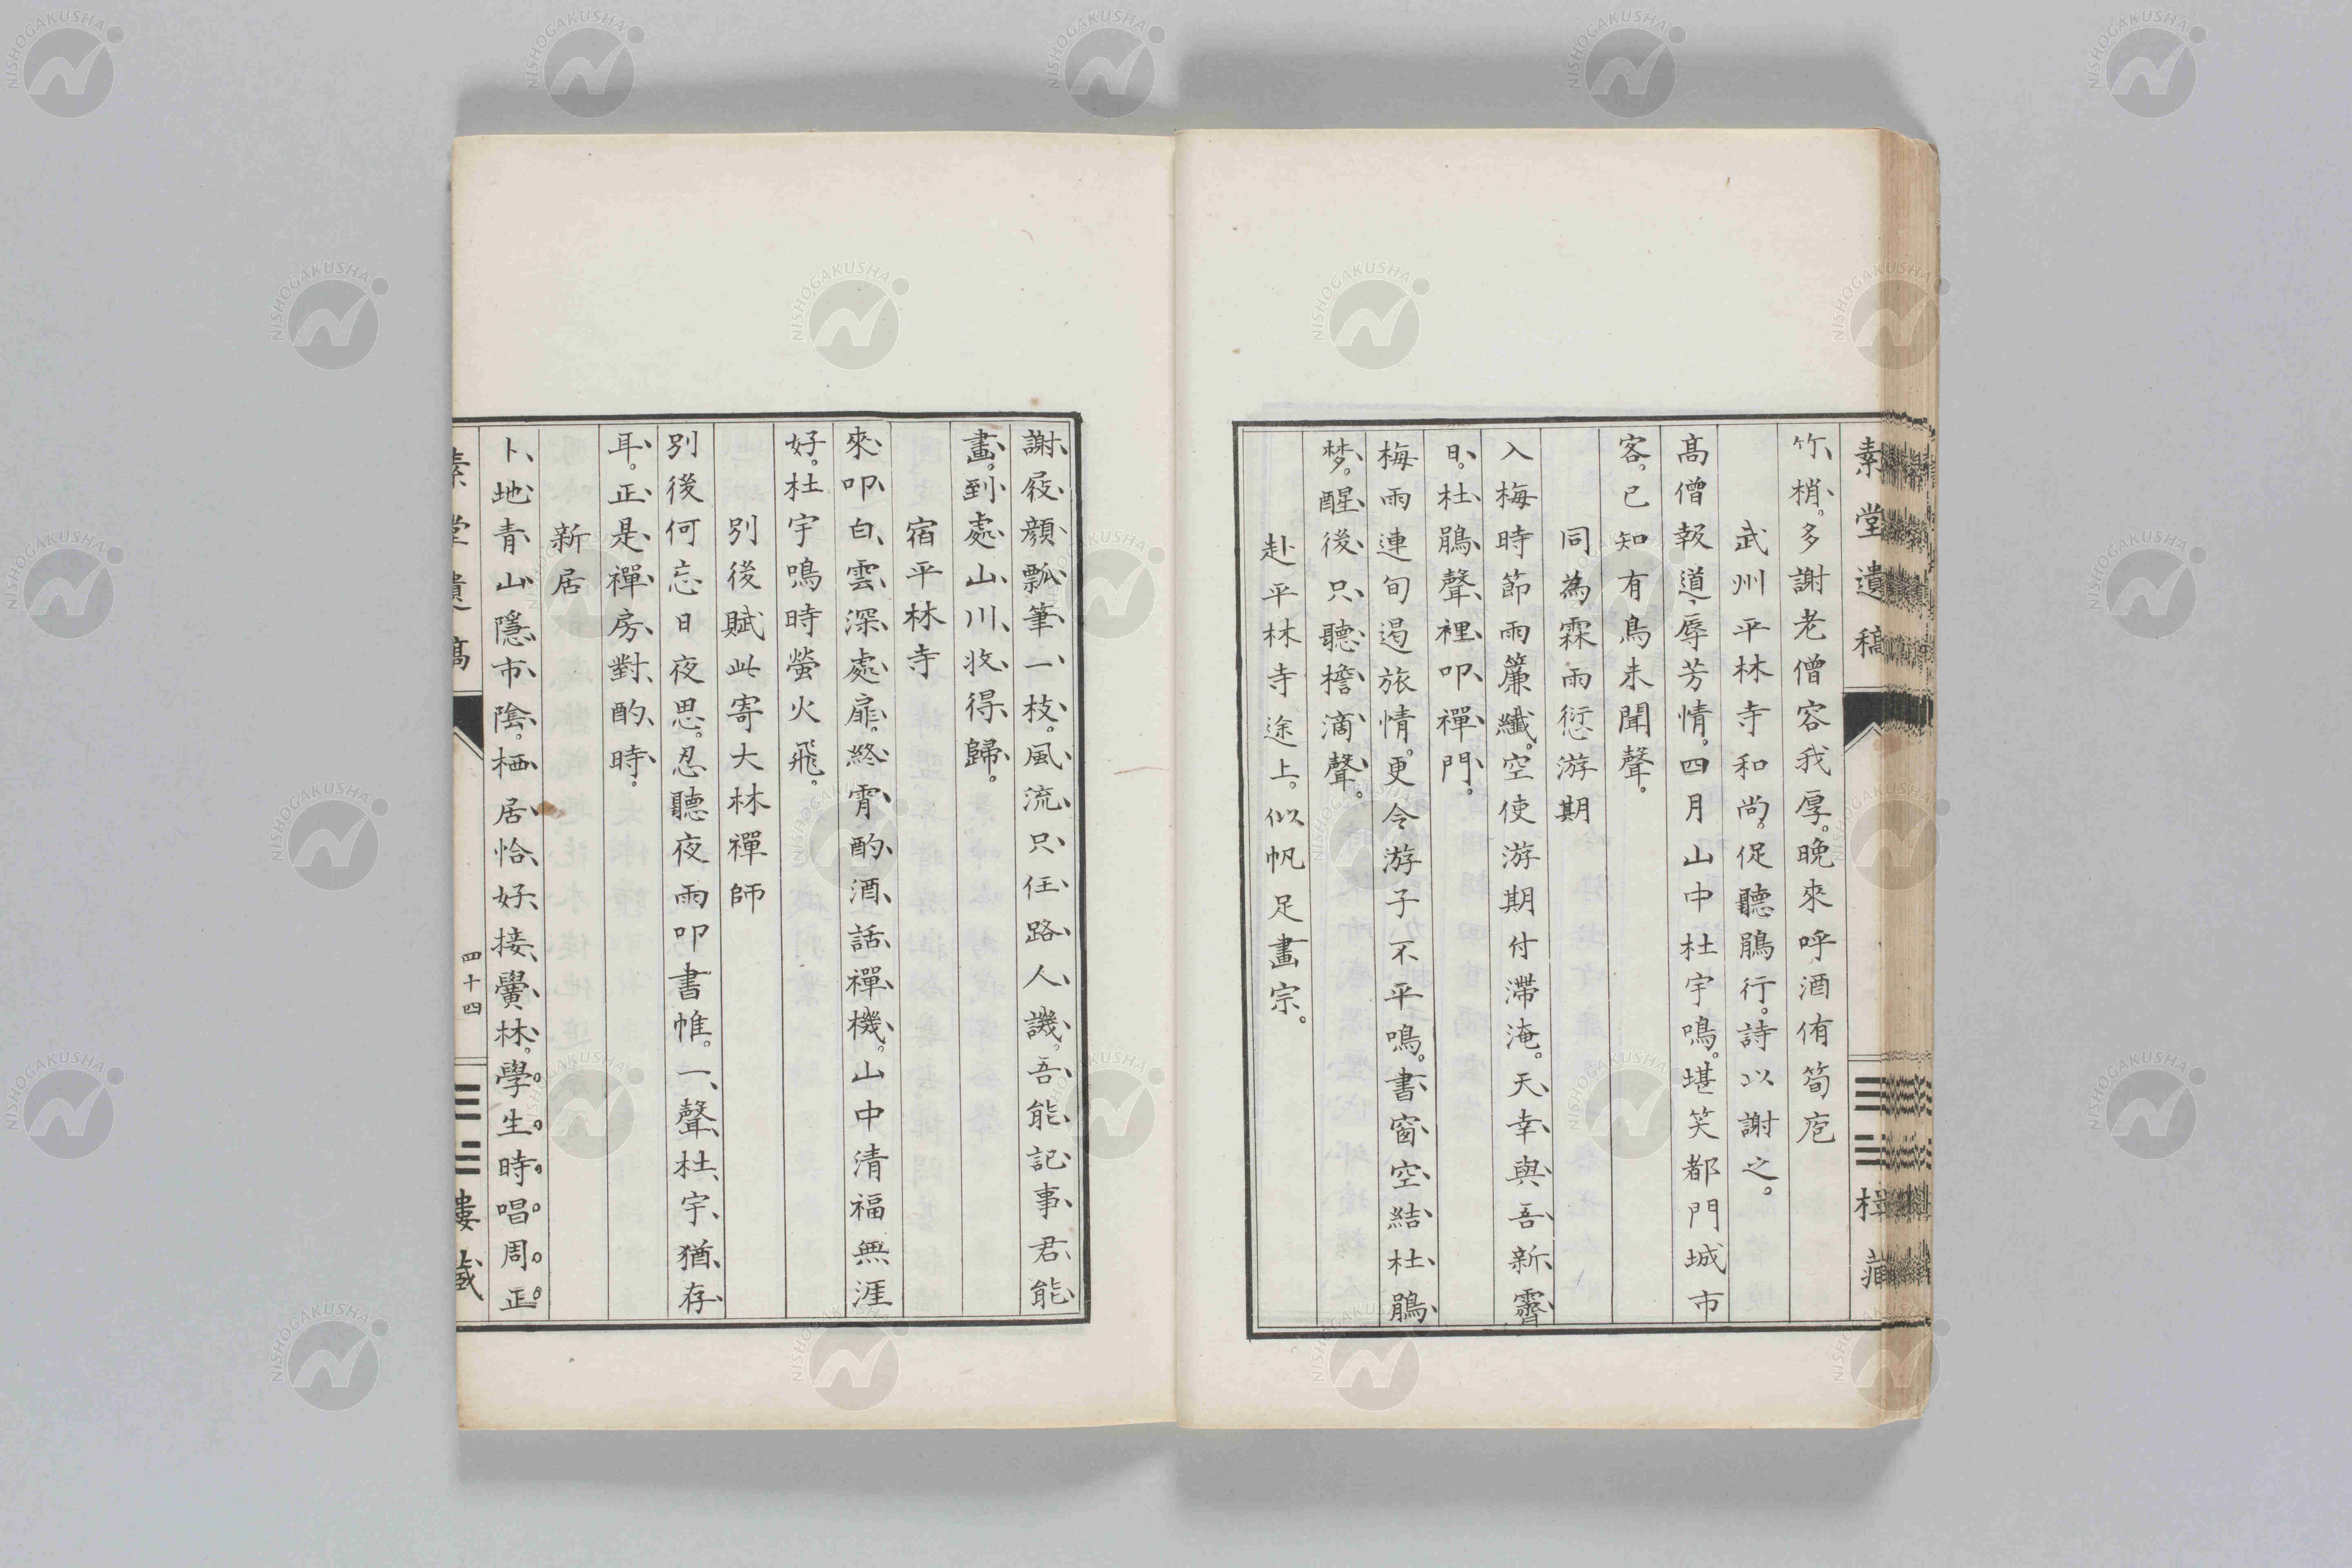 素堂遺稿
竹梢。多謝老僧容我厚。晚來呼酒侑筍庖
武州平林寺和尚。促聽鵑行。詩以謝之。
高僧報道辱芳情。四月山中杜宇鳴。堪笑都門城市
客。已知有鳥未聞聲。
同為霖雨愆游期
入梅時節雨簾纖。空使游期付滯淹。天幸與吾新霽
日。杜鵑聲裡叩禪門。
梅雨連旬遏旅情。更令游子不平鳴。書窗空結杜鵑
梦。醒後只聽檐滴聲。
赴平林寺途上。似帆足畫宗。
謝屐顏瓢筆一枝。風流只任路人譏。吾能記事君能
畫。到處山川收得歸。
宿平林寺
來叩白雲深處扉。終宵酌酒話禪機。山中清福無涯
好。杜宇鳴時螢火飛。
別後賦此寄大林禪師
別後何忘日夜思。忍聽夜雨叩書帷。一聲杜宇猶存
耳。正是禪房對酌時。
新居
卜地青山隱市陰。栖居恰好接黌林。學生時唱周正
素堂遺稿
四十四
NISHOGAKUSHA